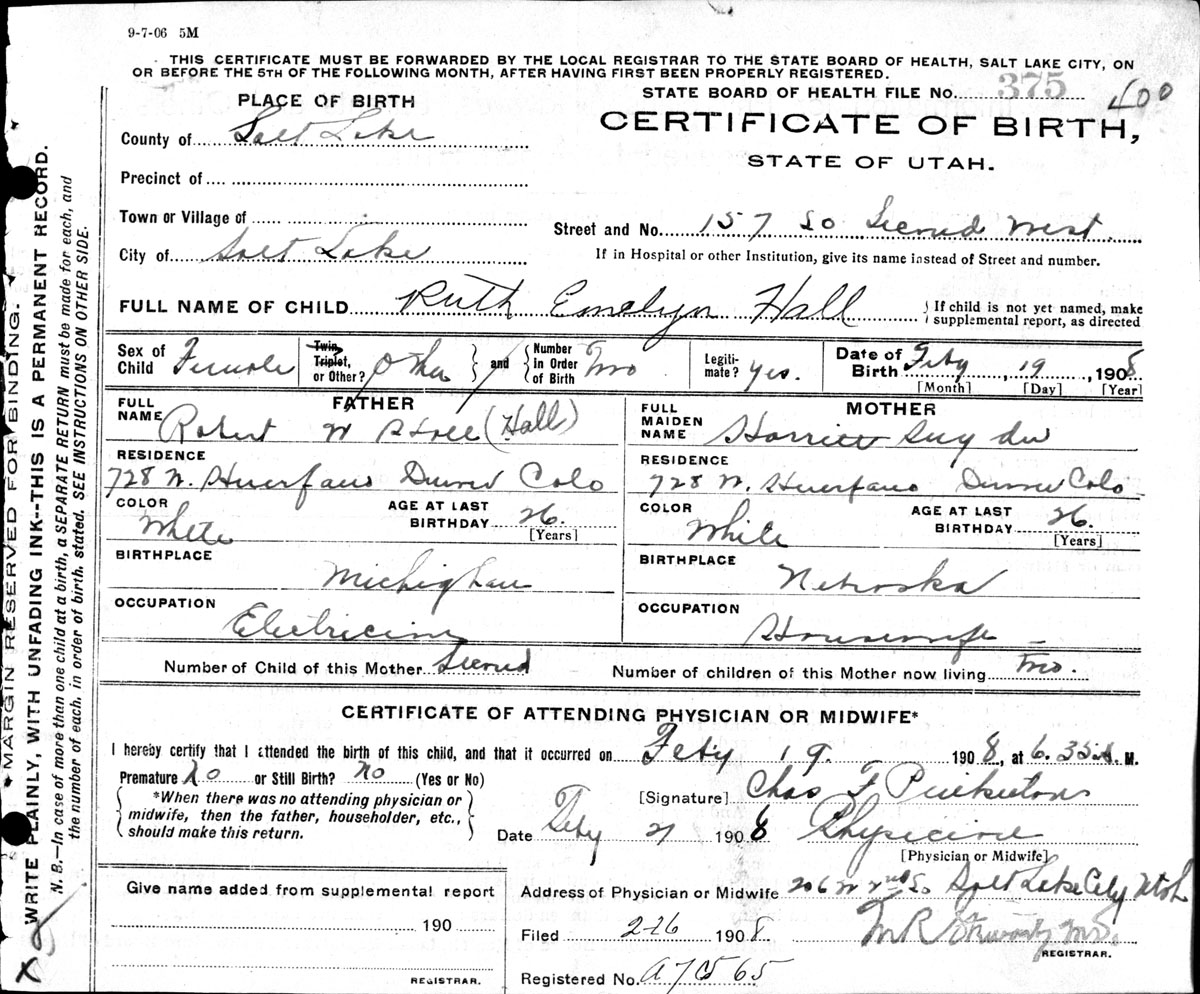 9-7-06 5M
THIS CERTIFICATE MUST BE FORWARDED BY THE LOCAL REGISTRAR TO THE STATE BOARD OF HEALTH, SALT LAKE CITY, ON
OR BEFORE THE 5TH OF THE FOLLOWING MONTH, AFTER HAVING FIRST BEEN PROPERLY REGISTERED.
STATE BOARD OF HEALTH FILE No. 375 400
PLACE OF BIRTH
CERTIFICATE OF BIRTH,
STATE OF UTAH.
County of Salt Lake
Precinct of
Town or Village of
Street and No. 157 So Second West
City of Salt Lake
If in Hospital or other Institution, give its name instead of Street and number.
FULL NAME OF CHILD Ruth Emelyn Hall
{ If child is not yet named, make
supplemental report, as directed
Sex of Child Female
Twin, Triplet, or Other? Other } and { Number in Order of Birth Two
Legitimate? Yes.
Date of Birth Feby, 19, 1908
[Month] [Day] [Year]
FATHER
FULL NAME Robert W Hall (Hall)
RESIDENCE
728 W. Huerfano Denver Colo
COLOR White
AGE AT LAST BIRTHDAY 26.
[Years]
BIRTHPLACE
Michighan
OCCUPATION
Electrician
MOTHER
FULL MAIDEN NAME Harriett Snyder
RESIDENCE
728 W. Huerfano Denver Colo
COLOR White
AGE AT LAST BIRTHDAY 26.
[Years]
BIRTHPLACE
Nebraska
OCCUPATION
Housewife
Number of Child of this Mother Second
Number of children of this Mother now living Two.
CERTIFICATE OF ATTENDING PHYSICIAN OR MIDWIFE*
I hereby certify that I attended the birth of this child, and that it occurred on Feby 19. 1908, at 6.35 A. M.
Premature No or Still Birth? No (Yes or No)
{ *When there was no attending physician or
midwife, then the father, householder, etc.,
should make this return. }
[Signature] Chas F Pinkerton
Date Feby 21 1908 Physician
[Physician or Midwife]
Give name added from supplemental report
190
REGISTRAR.
Address of Physician or Midwife 206 W 2nd So Salt Lake City Utah
Filed 2-26 1908
M R Stewart M.D.
REGISTRAR.
Registered No. A7C565
* MARGIN RESERVED FOR BINDING.
WRITE PLAINLY, WITH UNFADING INK--THIS IS A PERMANENT RECORD.
N. B.—In case of more than one child at a birth, a SEPARATE RETURN must be made for each, and
the number of each, in order of birth, stated. SEE INSTRUCTIONS ON OTHER SIDE.